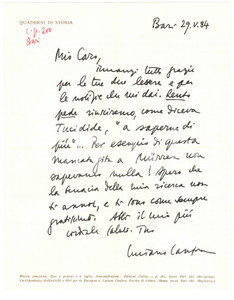 QUADERNI DI STORIA
Bari - 29.V.84
Mio Caro,
innanzi tutto grazie
per le tue due lettere e per
le notizie che mi dai. Lento
pede riusciremo, come diceva
Tucidide, "a saperne di
più"... Per esempio di questa
mancata gita a Münster non
sapevamo nulla! Spero che
la tenacia della mia ricerca non
ti annoi, e ti sono come sempre
gratissimo. Abbi il mio più
cordiale saluto. Tuo
Luciano Canfora